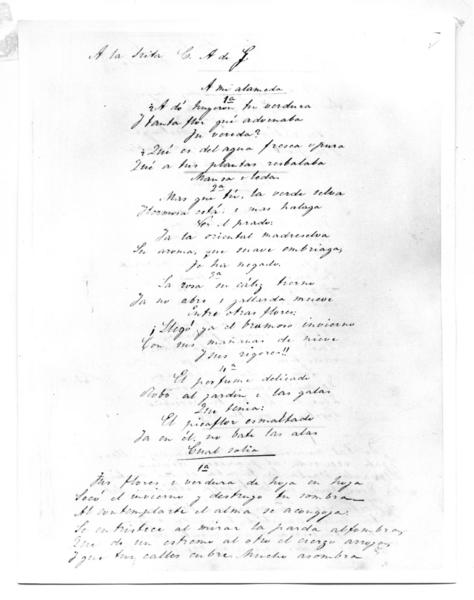 A la Srita C. A de G
A mi alameda
1ª
¿A dó huyeron tu verdura
I tanta flor qué adornaba
Tu vereda?
¿Qué es del agua fresca e pura
Qué a tus plantas resbalaba
Mansa e leda.
2ª
Mas que tú, la verde selva
Hermosa está, e mas halaga
el prado;
Ya la oriental madreselva
Su aroma, que suave embriaga,
Te ha negado.
3ª
La rosa su cáliz tierno
Ya no abre e gallarda mueve
Entre otras flores;
¡Llegó ya el brumoso invierno
Con sus mañanas de nieve
I sus rigores!!
4ª
El perfume delicado
Robó al jardin e las galas
Que tenia;
El picaflor esmaltado
Ya en él, no bate las alas
Cual solia
1ª
Tus flores e verdura de hoja en hoja
Secó el invierno y destruyo tu sombra
Al contemplarte el alma se acongoja:
Se entristece al mirar la parda alfombra,
Que de un estremo al otro el cierzo arroja,
I que tus calles cubre. Mucho asombra